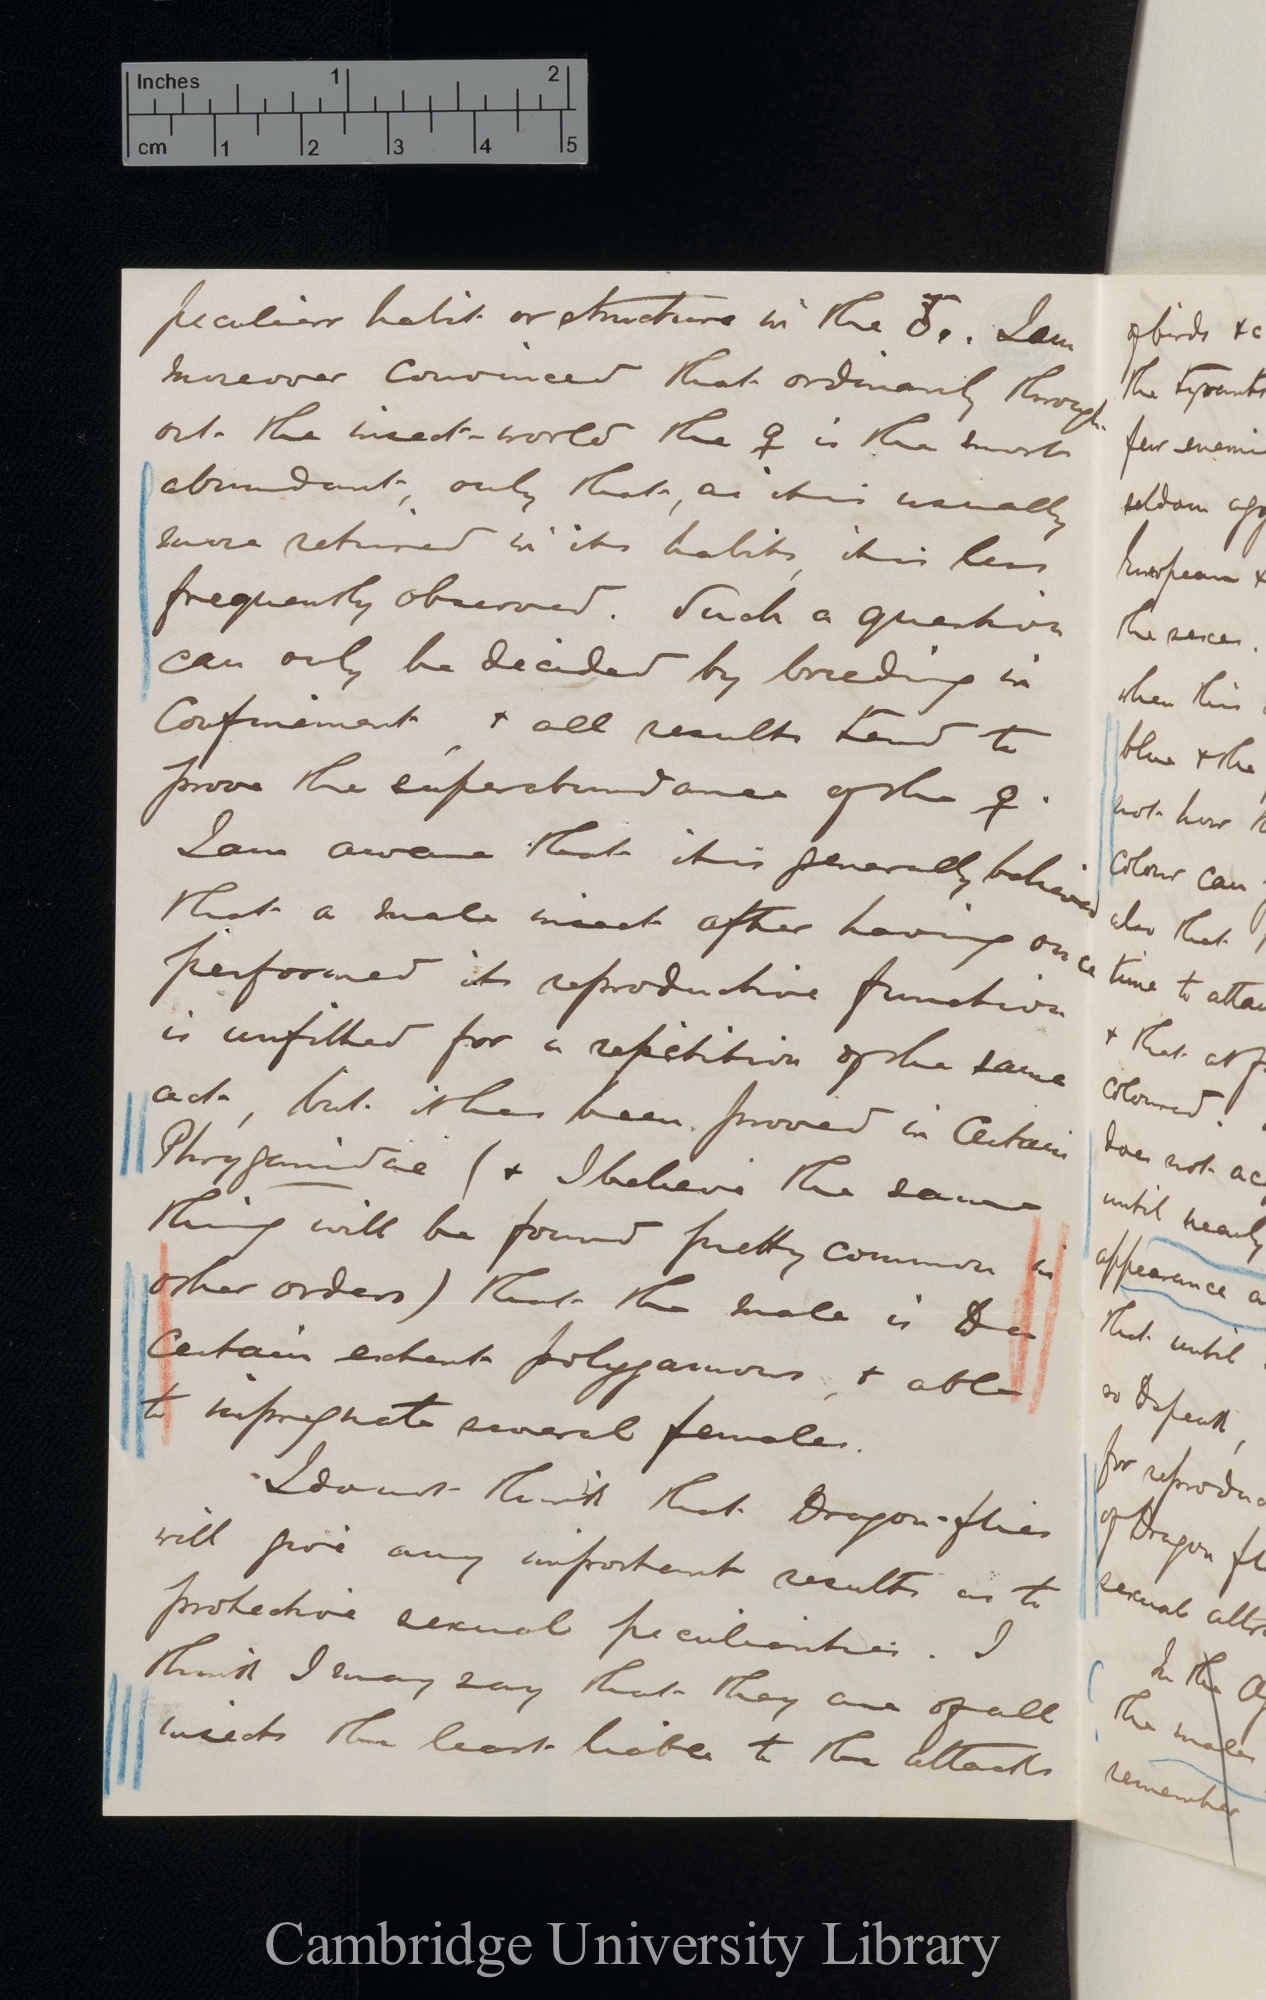 Inches 1 2
cm 1 2 3 4 5
peculiar habit or structure in the ♂. I am
moreover convinced that ordinarily through-
out the insect-world the ♀ is the most
abundant, only that, as it is usually
more retired in its habits, it is less
frequently observed. Such a question
can only be decided by breeding in
confinement, & all results tend to
prove the superabundance of the ♀.
I am aware that it is generally believed
that a male insect after having once
performed its reproductive function
is unfitted for a repitition of the same
act, but it has been proved in certain
Phryganidae (& I believe the same
thing will be found pretty common in
other orders) that the male is to a
certain extent polygamous, & able
to impregnate several females.
I do not think that Dragon-flies
will give any important results as to
protective sexual peculiarities. I
think I may say that they are of all
insects the least liable to the attacks
of birds &c
the tyrants
few enemi
seldom agg
European &
the sexes.
when this
blue & the
not how
colour can
also that
time to atta
& that at f
coloured.
does not ac
until nearly
appearance a
that until
so Dspeak,
for reprodu
of Dragon fl
sexual attr
In the
the males
remember
Cambridge University Library